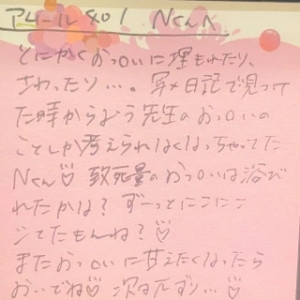 アムール401 Nくんへ
とにかくおっぱいに埋もれたり、
さわったり…。写メ日記で見つけ
た時からもう先生のおっぱいの
ことしか考えられなくなっちゃってた
Nくん♡ 致死量のおっぱいは浴び
れたかな? ずーっとにこにこ
シてたもんね?♡
またおっぱいに甘えたくなったら
おいでね♡ 次は